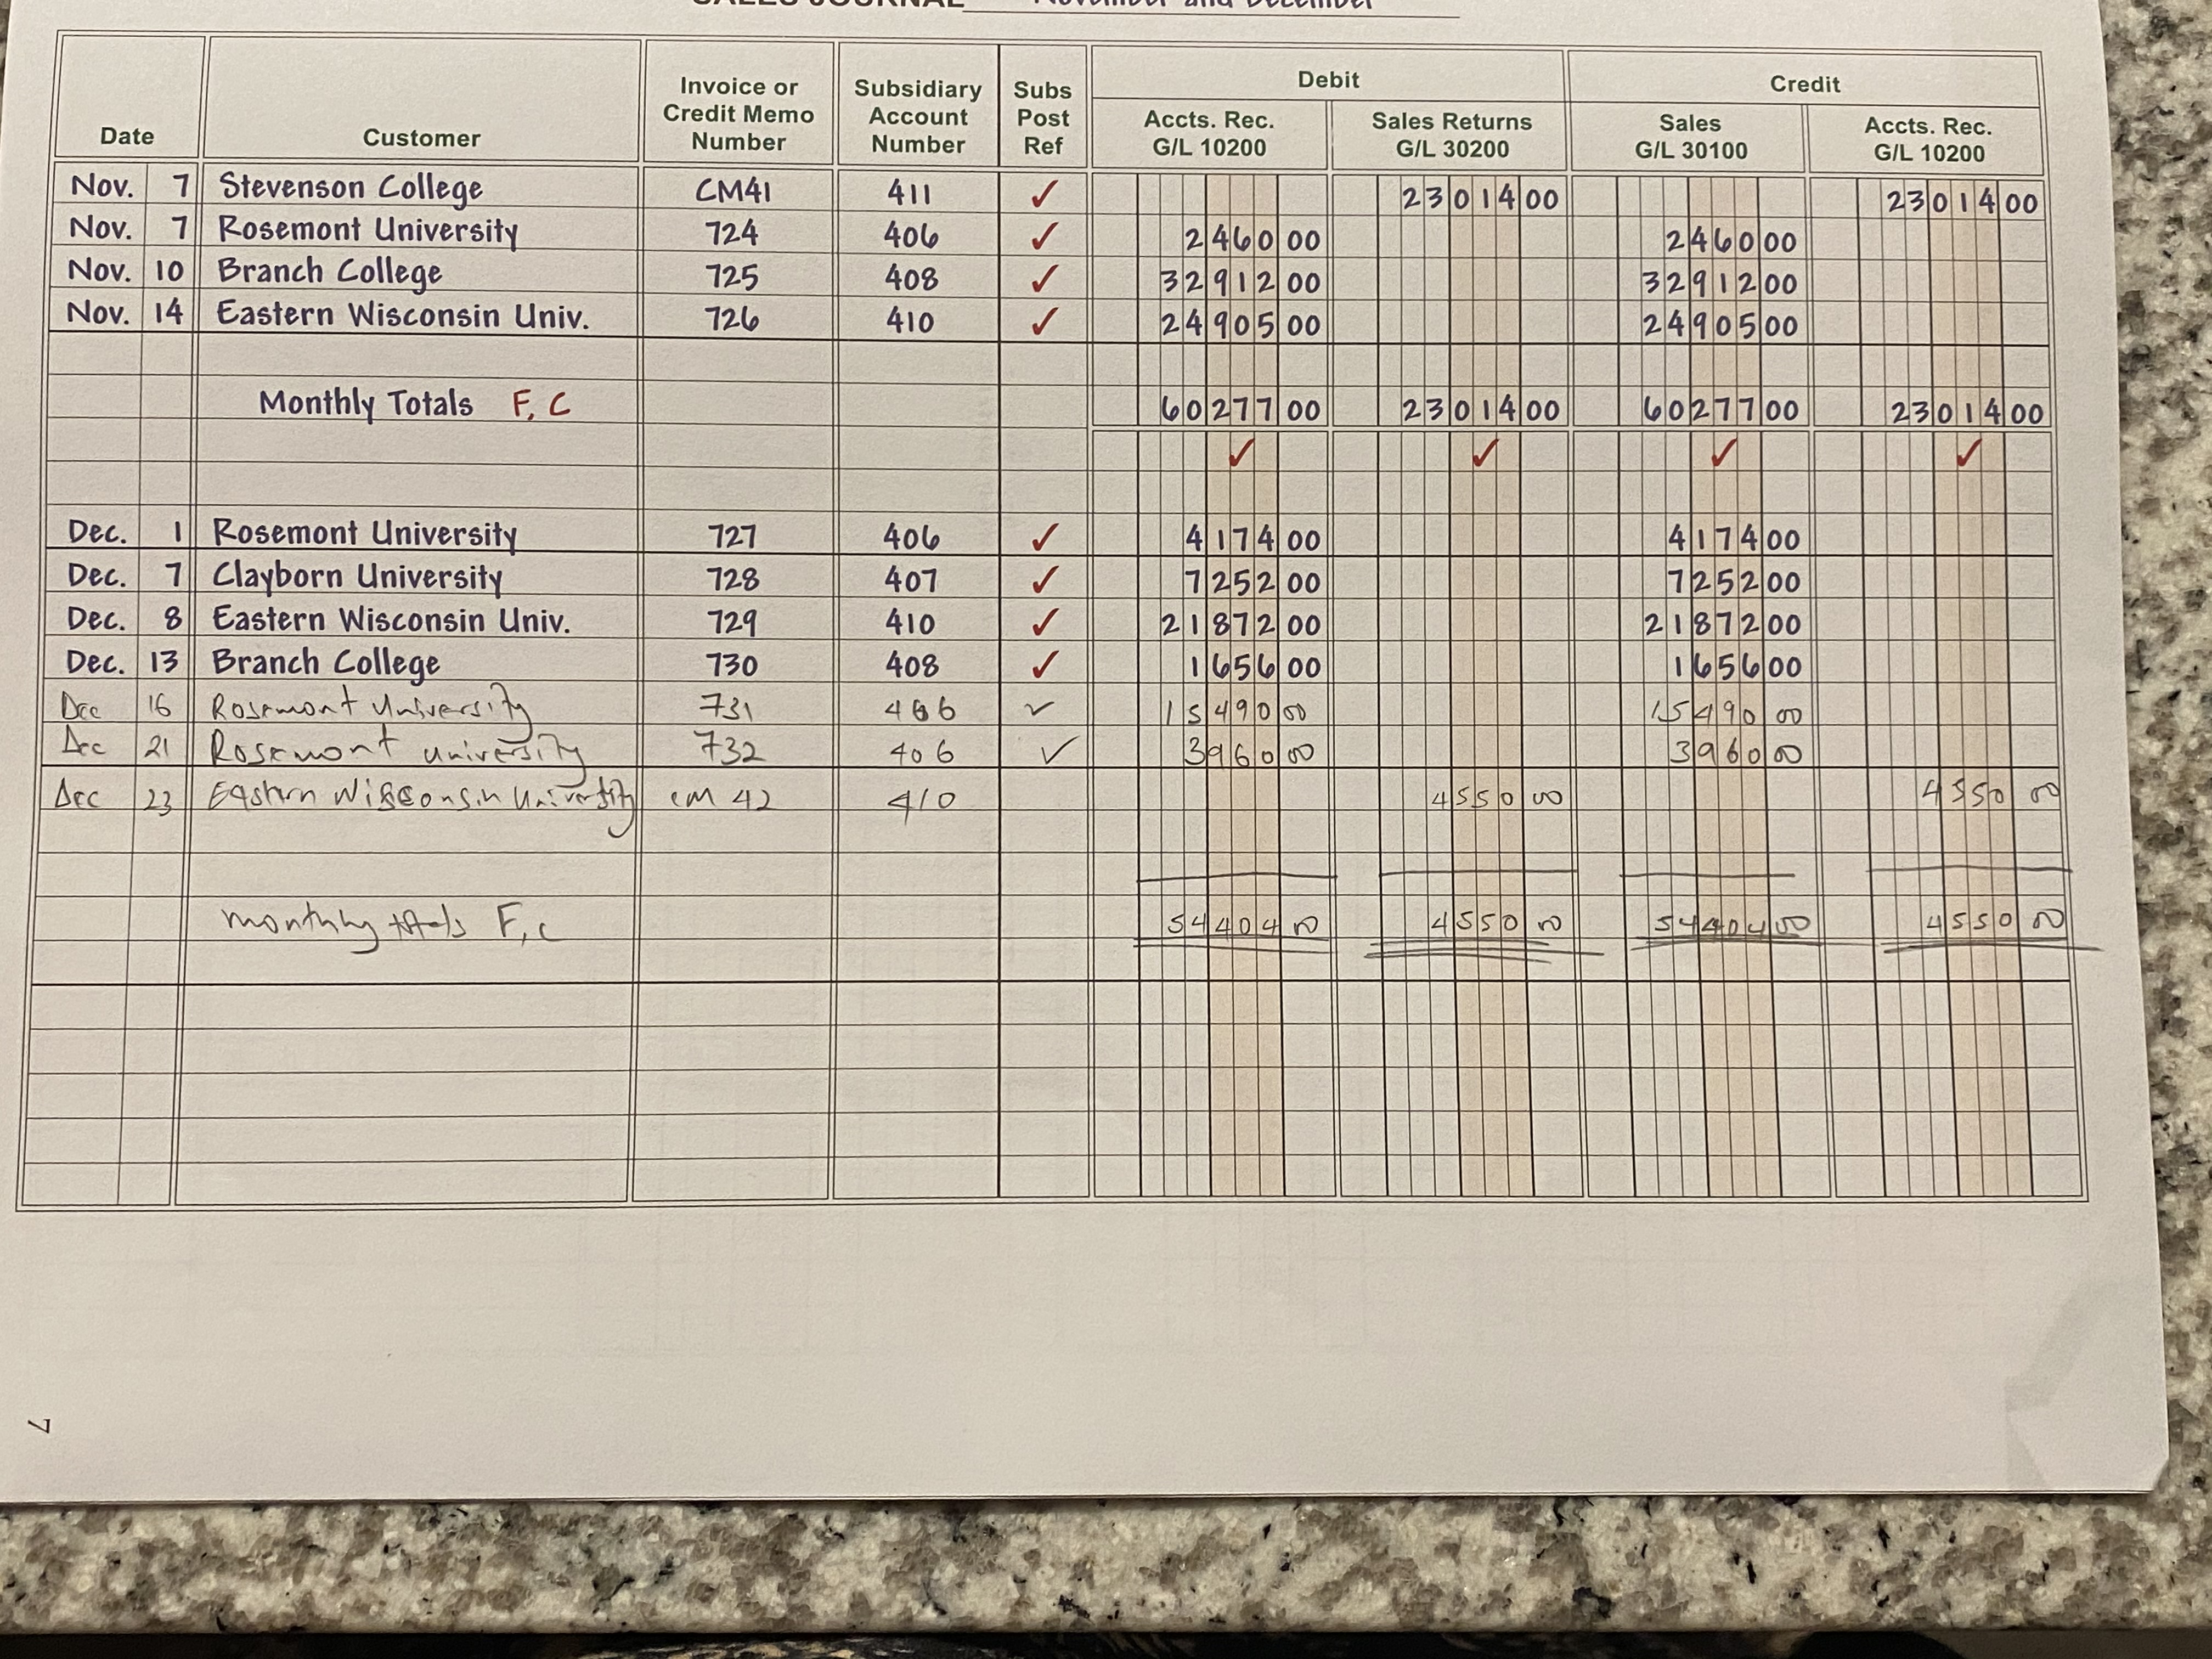 SALES JOURNAL November and December
Debit Credit
Date Customer Invoice or Credit Memo Number Subsidiary Account Number Subs Post Ref Accts. Rec. G/L 10200 Sales Returns G/L 30200 Sales G/L 30100 Accts. Rec. G/L 10200
Nov. 7 Stevenson College CM41 411 ✓ 23014 00 23014 00
Nov. 7 Rosemont University 724 406 ✓ 2460 00 2460 00
Nov. 10 Branch College 725 408 ✓ 32912 00 32912 00
Nov. 14 Eastern Wisconsin Univ. 726 410 ✓ 24905 00 24905 00
Monthly Totals F, C 60277 00 23014 00 60277 00 23014 00
✓ ✓ ✓ ✓
Dec. 1 Rosemont University 727 406 ✓ 4174 00 4174 00
Dec. 7 Clayborn University 728 407 ✓ 7252 00 7252 00
Dec. 8 Eastern Wisconsin Univ. 729 410 ✓ 21872 00 21872 00
Dec. 13 Branch College 730 408 ✓ 1656 00 1656 00
Dec 16 Rosemont University 731 406 ✓ 15490 00 15490 00
Dec 21 Rosemont University 732 406 ✓ 3960 00 3960 00
Dec 23 Eastern Wisconsin University CM 42 410 4550 00 4550 00
monthly totals F, C 54404 00 4550 00 54404 00 4550 00
7